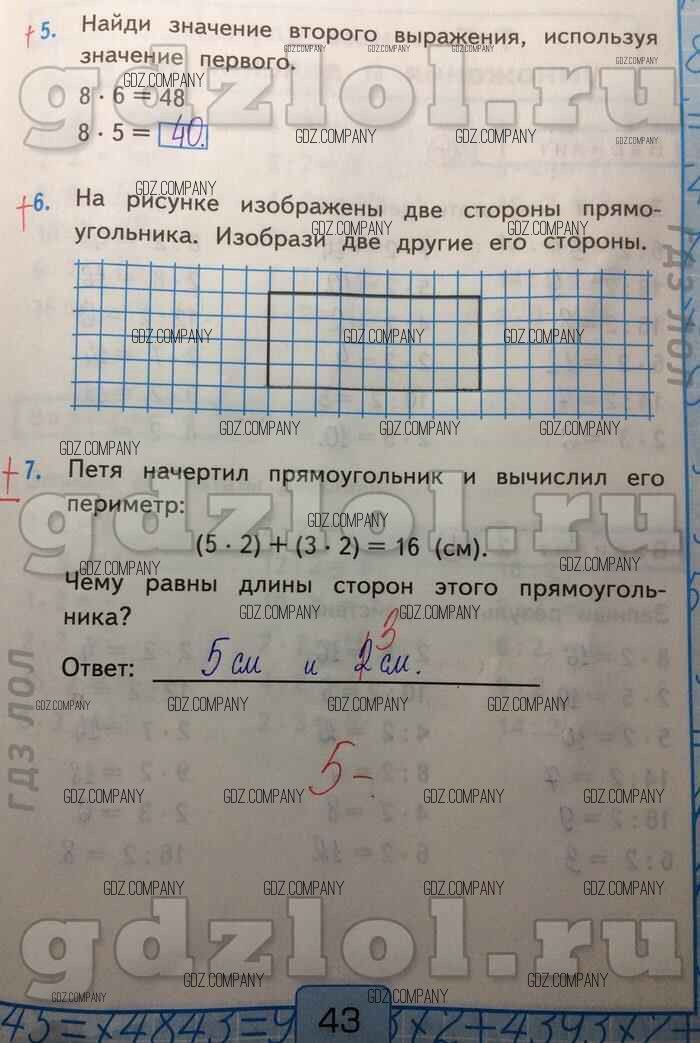 + 5. Найди значение второго выражения, используя
значение первого.
8 · 6 = 48
8 · 5 = 40.
+ 6. На рисунке изображены две стороны прямо-
угольника. Изобрази две другие его стороны.
+ 7. Петя начертил прямоугольник и вычислил его
периметр:
(5 · 2) + (3 · 2) = 16 (см).
Чему равны длины сторон этого прямоуголь-
ника?
3
Ответ: 5 см и 2 см.
5 –
43
gdzlol.ru
gdzlol.ru
gdzlol.ru
ГДЗ ЛОЛ
ГДЗ ЛОЛ
GDZ.COMPANY